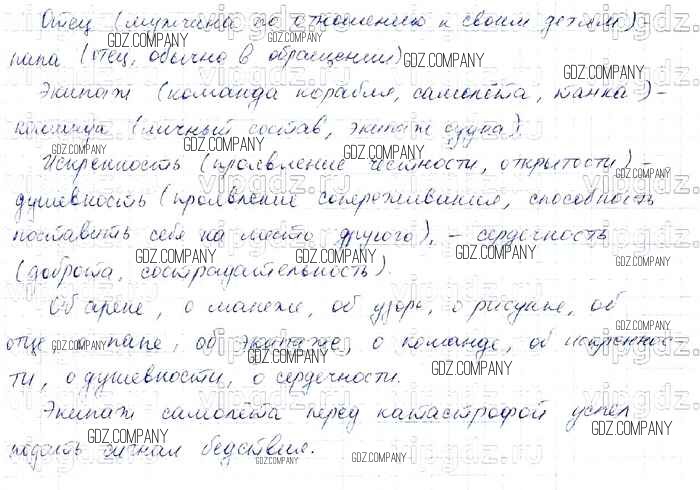 Отец (мужчина по отношению к своим детям) -
папа (отец, обычно в обращении)
Экипаж (команда корабля, самолёта, танка) -
команда (личный состав, экипаж судна).
Искренность (проявление честности, открытости) -
душевность (проявление сопереживания, способность
поставить себя на место другого), - сердечность
(доброта, сострадательность).
Об арене, о манеже, об узоре, о рисунке, об
отце, папе, об экипаже, о команде, об искреннос-
ти, о душевности, о сердечности.
Экипаж самолёта перед катастрофой успел
подать сигнал бедствия.
GDZ.COMPANY
vipgdz.ru